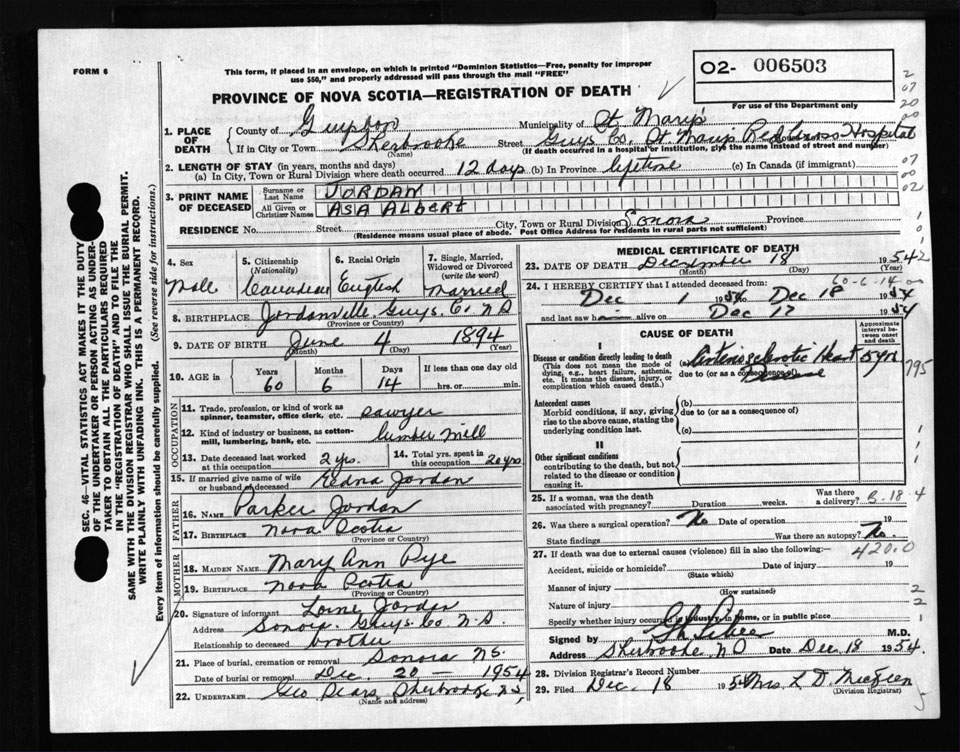 FORM 6
This form, if placed in an envelope, on which is printed "Dominion Statistics—Free, penalty for improper
use $50," and properly addressed will pass through the mail "FREE"
02- 006503
For use of the Department only
PROVINCE OF NOVA SCOTIA—REGISTRATION OF DEATH
SEC. 46—VITAL STATISTICS ACT MAKES IT THE DUTY
OF THE UNDERTAKER OR PERSON ACTING AS UNDER-
TAKER TO OBTAIN ALL THE PARTICULARS REQUIRED
IN THE "REGISTRATION OF DEATH" AND TO FILE THE
SAME WITH THE DIVISION REGISTRAR WHO SHALL ISSUE THE BURIAL PERMIT.
WRITE PLAINLY WITH UNFADING INK. THIS IS A PERMANENT RECORD.
Every item of information should be carefully supplied. (See reverse side for instructions.)
1. PLACE OF DEATH County of Guysboro Municipality of St Mary's
If in City or Town Sherbrooke (Name) Street Guys Co, St. Marys Red Cross Hospital
(If death occurred in a hospital or institution, give the name instead of street and number)
2. LENGTH OF STAY (in years, months and days)
(a) In City, Town or Rural Division where death occurred 12 days (b) In Province lifetime (c) In Canada (if immigrant)
3. PRINT NAME OF DECEASED Surname or Last Name JORDAN
All Given or Christian Names ASA ALBERT
RESIDENCE No. Street City, Town or Rural Division Sonora Province
(Residence means usual place of abode. Post Office Address for residents in rural parts not sufficient)
4. Sex Male
5. Citizenship (Nationality) Canadian
6. Racial Origin English
7. Single, Married, Widowed or Divorced (write the word) Married
8. BIRTHPLACE Jordanville Guys. Co N S
(Province or Country)
9. DATE OF BIRTH June 4 1894
(Month) (Day) (Year)
10. AGE in Years 60 Months 6 Days 14 If less than one day old hrs. or min.
OCCUPATION
11. Trade, profession, or kind of work as spinner, teamster, office clerk, etc. sawyer
12. Kind of industry or business, as cotton-mill, lumbering, bank, etc. lumber mill
13. Date deceased last worked at this occupation 2 yrs.
14. Total yrs. spent in this occupation 20 yrs
15. If married give name of wife or husband of deceased Edna Jordan
FATHER
16. NAME Parker Jordan
17. BIRTHPLACE Nova Scotia
(Province or Country)
MOTHER
18. MAIDEN NAME Mary Ann Pye
19. BIRTHPLACE Nova Scotia
(Province or Country)
20. Signature of informant Lorne Jordan
Address Sonora. Guys. Co N.S.
Relationship to deceased brother
21. Place of burial, cremation or removal Sonora N.S.
Date of burial or removal Dec. 20 1954
22. UNDERTAKER Geo Pears, Sherbrooke N.S,
(Name and address)
MEDICAL CERTIFICATE OF DEATH
23. DATE OF DEATH December 18 1954
(Month) (Day) (Year)
24. I HEREBY CERTIFY that I attended deceased from: 60-6-14
Dec 1 1954 to Dec 18 1954
and last saw h alive on Dec 17 1954
CAUSE OF DEATH
Approximate interval between onset and death
I
Disease or condition directly leading to death
(This does not mean the mode of dying, e.g., heart failure, asthenia, etc. It means the disease, injury, or complication which caused death.)
(a) Arteriosclerotic Heart Disease 5 yrs
due to (or as a consequence of)
Antecedent causes
Morbid conditions, if any, giving rise to the above cause, stating the underlying condition last.
(b)
due to (or as a consequence of)
(c)
II
Other significant conditions
contributing to the death, but not related to the disease or condition causing it.
25. If a woman, was the death associated with pregnancy? Duration weeks. Was there a delivery? B-18-4
26. Was there a surgical operation? No Date of operation 19
State findings Was there an autopsy? No.
27. If death was due to external causes (violence) fill in also the following:— 420.0
Accident, suicide or homicide? (State which) Date of injury 19
Manner of injury
(How sustained)
Nature of injury
Specify whether injury occurred in industry, in home, or in public place
Signed by M.D.
Address Sherbrooke, N S Date Dec 18 1954.
28. Division Registrar's Record Number
29. Filed Dec. 18 1954 Mrs. L D.
(Division Registrar)